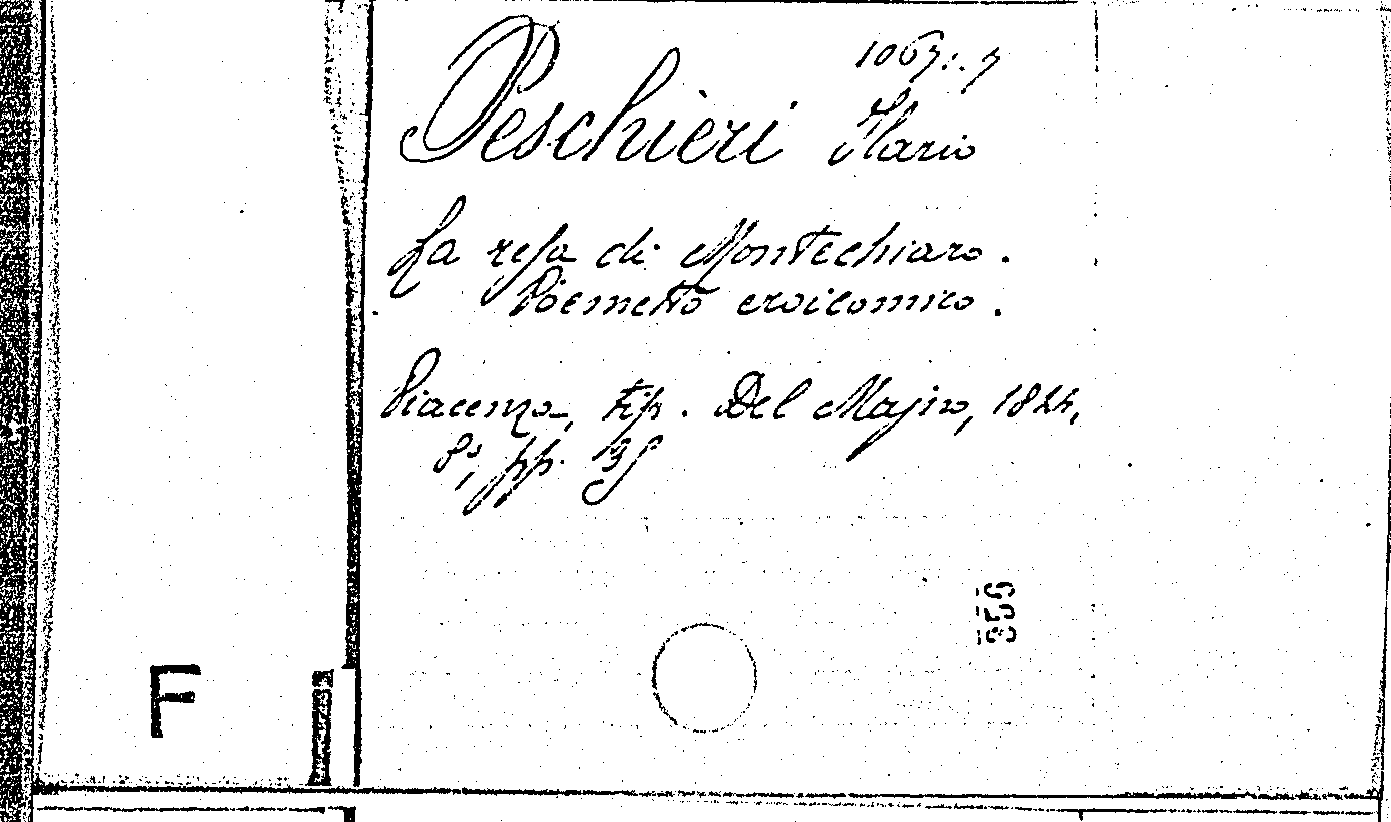 1067:.7
Peschieri Ilario
La resa di Montechiaro.
Poemetto eroicomico.
Piacenza, tip. Del Majno, 1824,
8°, pp. 35
F